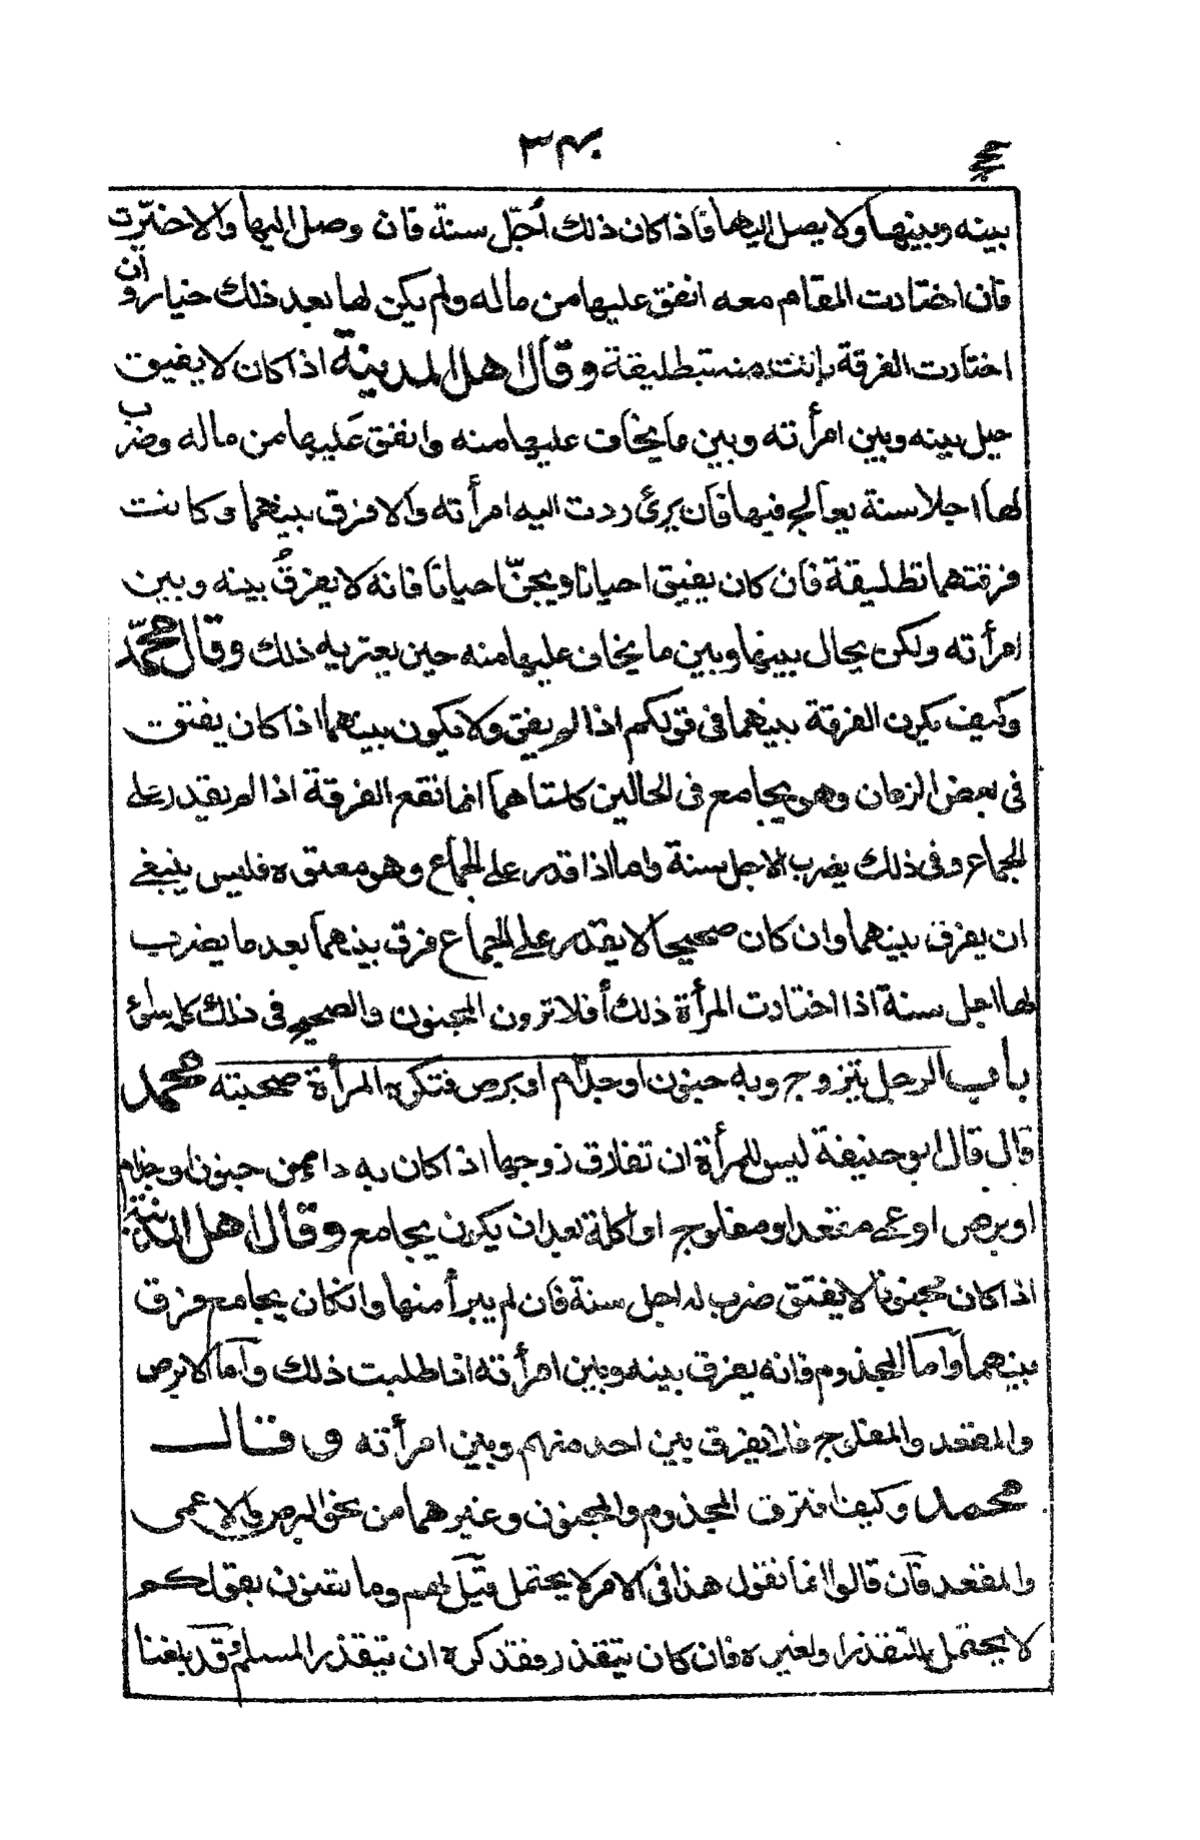 ٣٤٠
بينه وبينها ولا يصل اليها فاذا كان ذلك أجّل سنة، فان وصل اليها والا خيّرت
فان اختارت المقام معه انفق عليها من ماله ولم يكن لها بعد ذلك خيار وان
اختارت الفرقة بانت منه بتطليقة وقال اهل المدينة اذا كان لا يفيق
حيل بينه وبين امرأته وبين ما يخاف عليها منه وانفق عليها من ماله وضرب
لها اجلا سنة يعالج فيها فان برئ ردت اليه امرأته والا فرق بينهما وكانت
فرقتهما تطليقة فان كان يفيق احيانا ويجنّ احيانا فانه لا يفرق بينه وبين
امرأته ولكن يحال بينها وبين ما يخاف عليها منه حين يعتريه ذلك وقال محمّد
وكيف يكون الفرقة بينهما فى قولكم اذا لم يفق ولا يكون بينهما اذا كان يفيق
فى بعض الزمان وهو يجامع فى الحالين كلتاهما انما تقع الفرقة اذا لم يقدر على
الجماع وفى ذلك يضرب الاجل سنة واما اذا قدر على الجماع وهو معتوه فليس ينبغى
ان يفرق بينهما وان كان صحيحا لا يقدر على الجماع فرق بينهما بعد ما يضرب
لها اجل سنة اذا اختارت المرأة ذلك أفلا ترون المجنون والصحيح فى ذلك كله سواء
باب الرجل يتزوج وبه جنون او جذام او برص فتكره المرأة صحبته محمد
قال قال ابو حنيفة ليس للمرأة ان تفارق زوجها اذا كان به داء من جنون او جذام
او برص او عمى مقعد او مفلوج او اكلة بعد ان يكون يجامع وقال اهل المدينة
اذا كان مجنونا لا يفيق ضرب له اجل سنة فان لم يبرأ منها وان كان يجامع فرق
بينهما وأما المجذوم فانه يفرق بينه وبين امرأته اذا طلبت ذلك وأما الابرص
والمقعد والمفلوج فلا يفرق بين احد منهم وبين امرأته وقال
محمد وكيف افترق المجذوم والمجنون وغيرهما من نحو الابرص والاعمى
والمقعد فان قالوا انما نقول هذا فى الامر لا يحتمل قيل لهم وما تعنون بقولكم
لا يحتمل بالتقذر او لغيره فان كان يتقذر فقد كره ان يتقذر المسلم وقد بلغنا